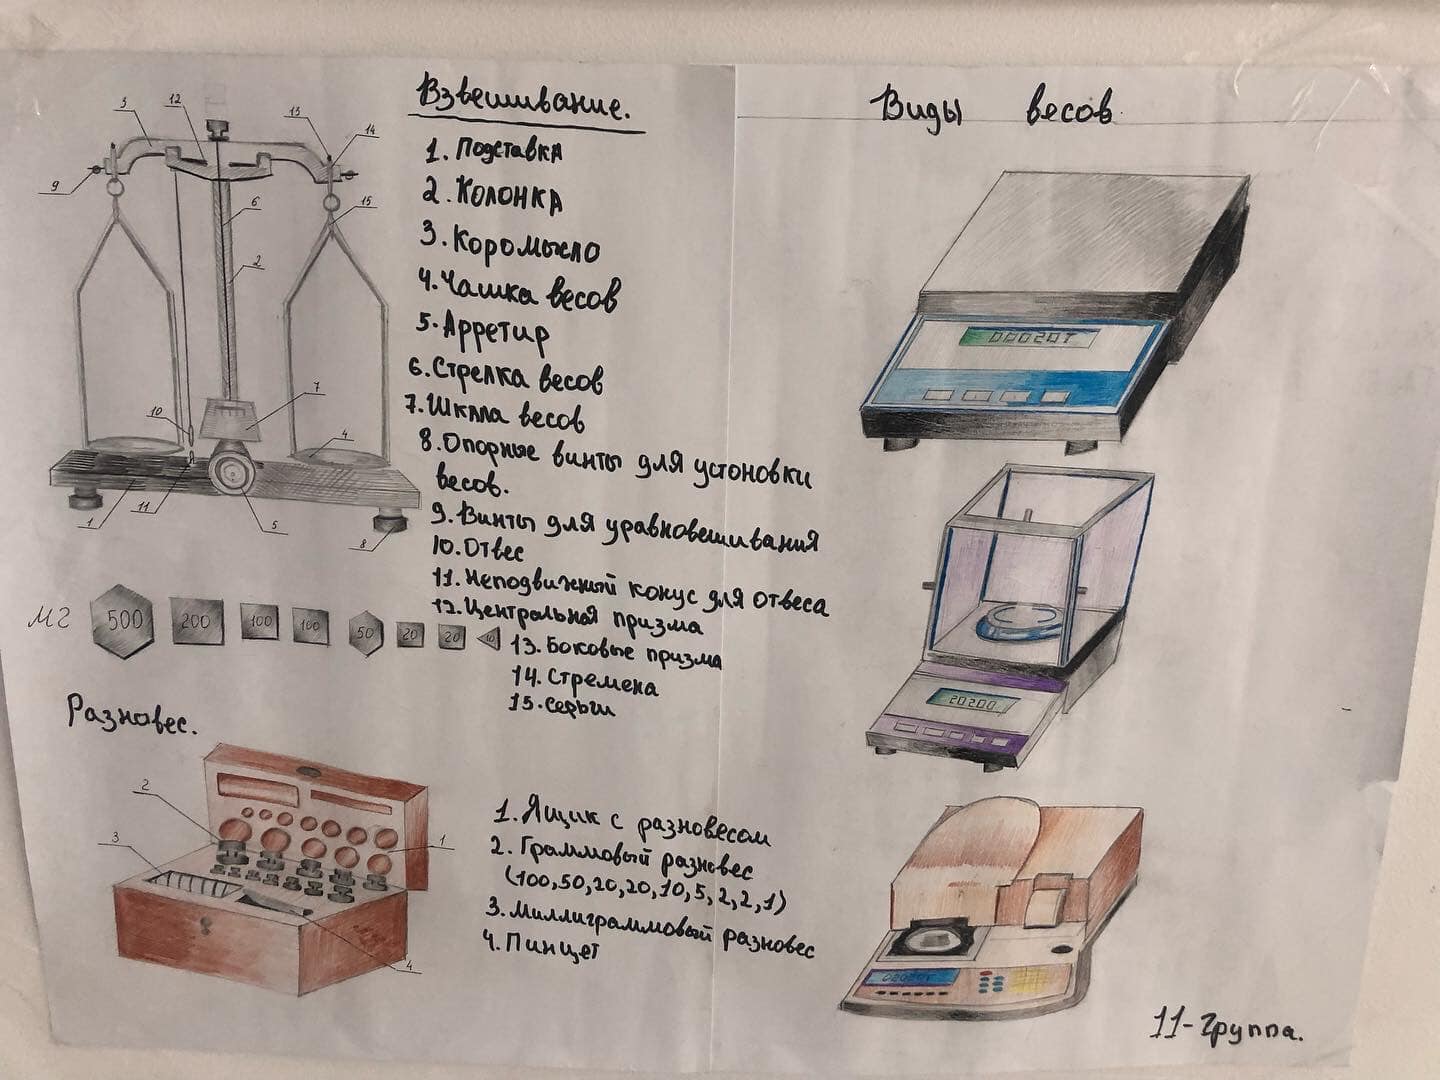 Взвешивание.
1. Подставка
2. Колонка
3. Коромысло
4. Чашка весов
5. Арретир
6. Стрелка весов
7. Шкала весов
8. Опорные винты для устоновки
весов.
9. Винты для уравновешивания
10. Отвес
11. Неподвижный конус для отвеса
12. Центральная призма
13. Боковые призма
14. Стремена
15. Серьги
3
12
13
14
9
6
15
2
10
7
4
1
11
5
8
мг 500 200 100 100 50 20 20 10
Разновес.
2
3
1
4
1. Ящик с разновесом
2. Граммовый разновес
(100, 50, 20, 20, 10, 5, 2, 2, 1)
3. Миллиграммовый разновес
4. Пинцет
Виды весов
20200
11-группа.